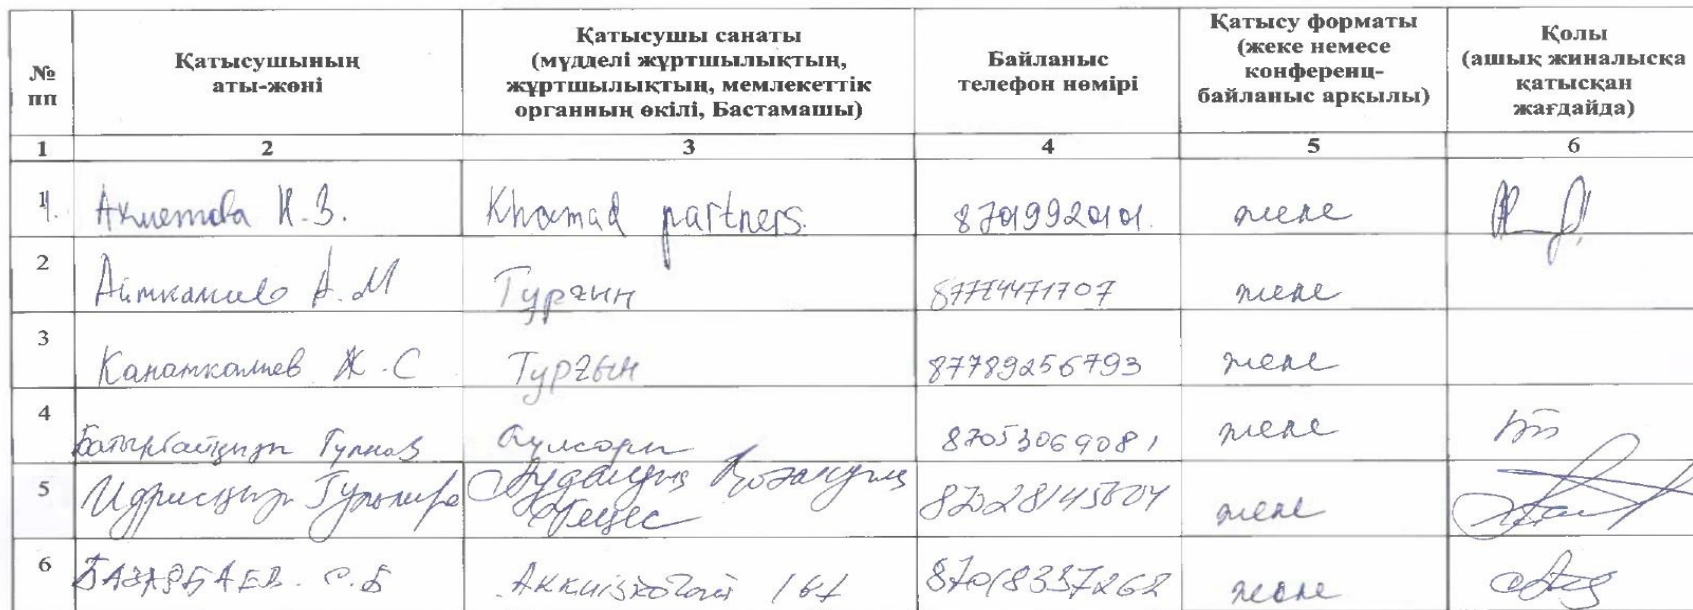 № пп
Қатысушының аты-жөні
Қатысушы санаты (мүдделі жұртшылықтың, жұртшылықтың, мемлекеттік органның өкілі, Бастамашы)
Байланыс телефон нөмірі
Қатысу форматы (жеке немесе конференц-байланыс арқылы)
Қолы (ашық жиналысқа қатысқан жағдайда)
1 2 3 4 5 6
1. Ахметова К.З. Khamad partners. 87019920101. жеке
2 А.М Тұрғын 87774471707 жеке
3 Канаткалиев Ж.С Тұрғын 87789256793 жеке
4 Батырбайқызы 87053069081 жеке
5 Идрисқызы Гульмира Аудандық Қоғамдық Кеңес 87028145604 жеке
6 БАЗАРБАЕВ. С.Б 87018337262 жеке